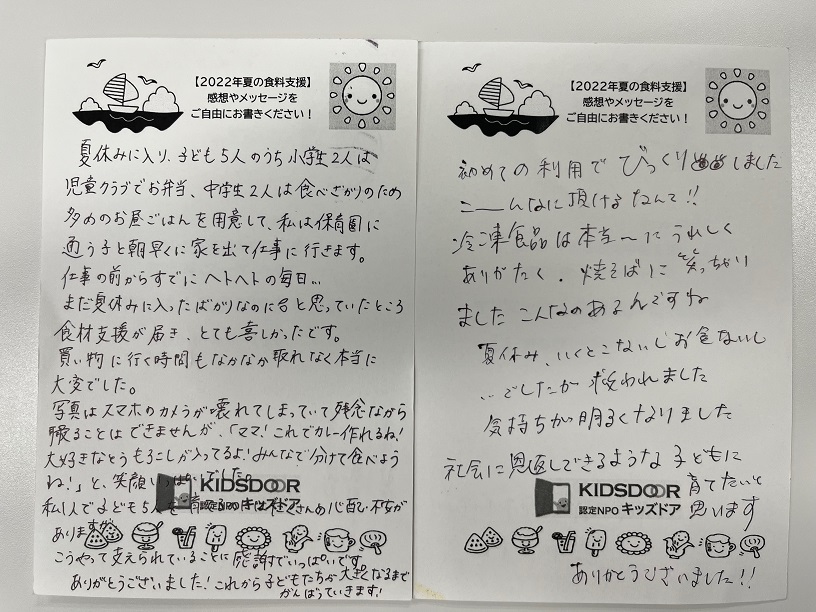 【2022年夏の食料支援】
感想やメッセージを
ご自由にお書きください！
夏休みに入り、子ども5人のうち小学生2人は
児童クラブでお弁当、中学生2人は食べざかりのため
多めのお昼ごはんを用意して、私は保育園に
通う子と朝早くに家を出て仕事に行きます。
仕事の前からすでにヘトヘトの毎日…
まだ夏休みに入ったばかりなのに…と思っていたところ
食材支援が届き、とても喜しかったです。
買い物に行く時間もなかなか取れなく本当に
大変でした。
写真はスマホのカメラが壊れてしまっていて残念ながら
撮ることはできませんが、「ママ！これでカレー作れるね！
大好きなとうもろこしが入ってるよ！みんなで分けて食べよう
ね！」と、笑顔いっぱいでした。
私1人で子ども5人を育てるのにはたくさんの心配や不安が
ありますが、
KIDSDOOR
認定NPO キッズドア
こうやって支えられていることに感謝でいっぱいです。
ありがとうございました！これから子どもたちが大きくなるまで
がんばっていきます！
【2022年夏の食料支援】
感想やメッセージを
ご自由にお書きください！
初めての利用でびっくりしました
こーんなに頂けるなんて！！
冷凍食品は本当〜にうれしく
ありがたく、焼そばに笑っちゃり
ましたこんなのあるんですね
夏休み、いくとこないしお金ないし
…でしたが救われました
気持ちが明るくなりました
社会に恩返しできるような子どもに
育てたいと
思います
KIDSDOOR
認定NPO キッズドア
ありがとうございました！！